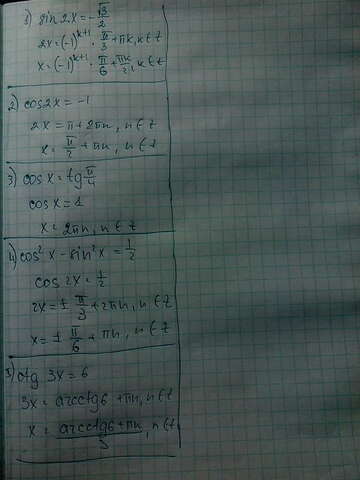 1) sin 2x = -√3/2
2x = (-1)^(k+1) · π/3 + πk, k ∈ z
x = (-1)^(k+1) · π/6 + πk/2, k ∈ z
2) cos 2x = -1
2x = π + 2πn, n ∈ z
x = π/2 + πn, n ∈ z
3) cos x = tg π/4
cos x = 1
x = 2πn, n ∈ z
4) cos² x - sin² x = 1/2
cos 2x = 1/2
2x = ± π/3 + 2πn, n ∈ z
x = ± π/6 + πn, n ∈ z
5) ctg 3x = 6
3x = arcctg6 + πn, n ∈ z
x = (arcctg6 + πn)/3, n ∈ z